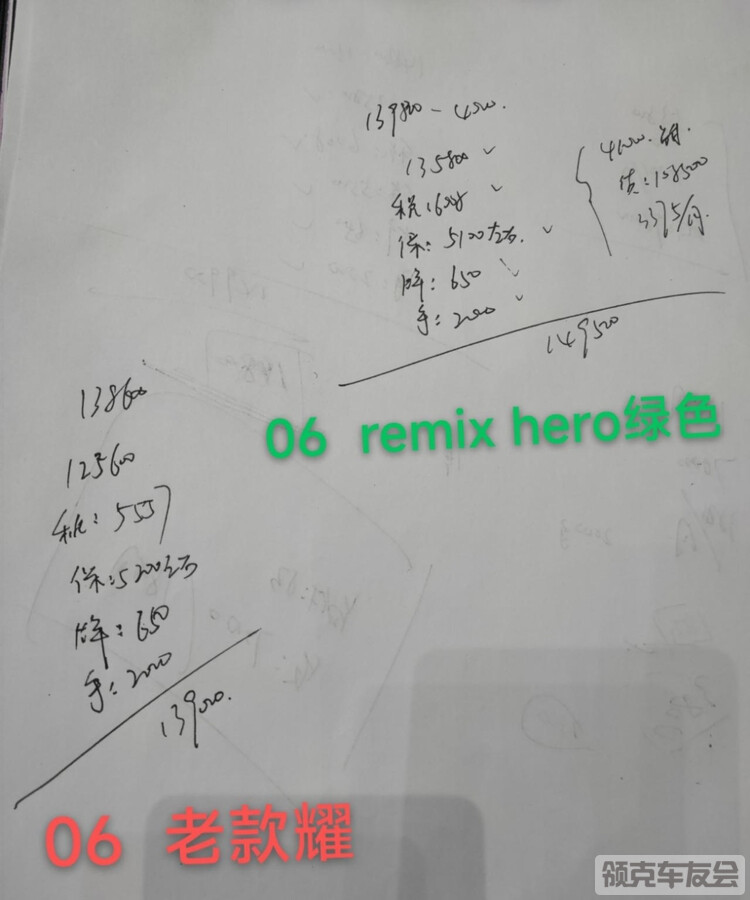 139800-4000.
135800
税:6008
保:5100左右.
牌:650
手:2000
149500
贷:108500
3375/月.
06 remix hero绿色
138600
125600
税:5557
保:5200左右
牌:650
手:2000
139000.
06 老款耀
领克车友会